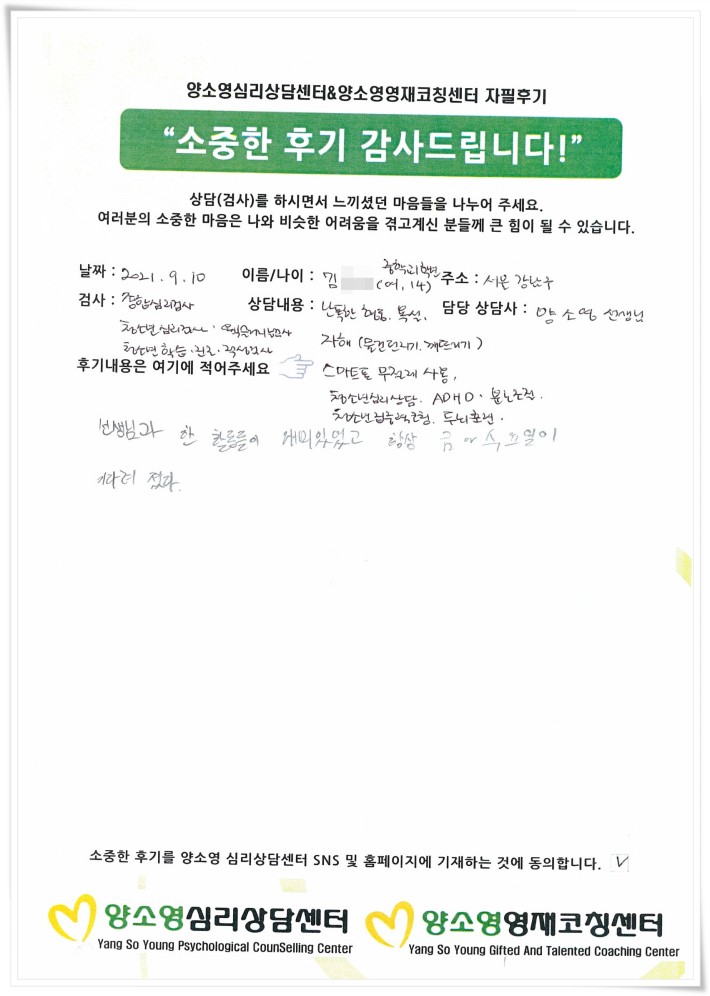 양소영심리상담센터&양소영영재코칭센터 자필후기
“소중한 후기 감사드립니다!”
상담(검사)를 하시면서 느끼셨던 마음들을 나누어 주세요.
여러분의 소중한 마음은 나와 비슷한 어려움을 겪고계신 분들께 큰 힘이 될 수 있습니다.
날짜 : 2021. 9. 10 이름/나이 : 김 (여, 14) 주소 : 서울 강남구
검사 : 종합심리검사 상담내용 : 폭설, 담당 상담사 : 양소영 선생님
청소년 심리검사 ·
청소년 학습·진로·적성검사 자해 (물건던지기, 깨뜨리기)
후기내용은 여기에 적어주세요 스마트폰 무절제 사용,
청소년심리상담. ADHD · 분노조절.
청소년집중력코칭. 두뇌훈련.
선생님과 한 활동들이 재미있었고 항상 금요일이
기다려 졌다.
소중한 후기를 양소영 심리상담센터 SNS 및 홈페이지에 기재하는 것에 동의합니다. V
양소영심리상담센터 양소영영재코칭센터
Yang So Young Psychological CounSelling Center Yang So Young Gifted And Talented Coaching Center